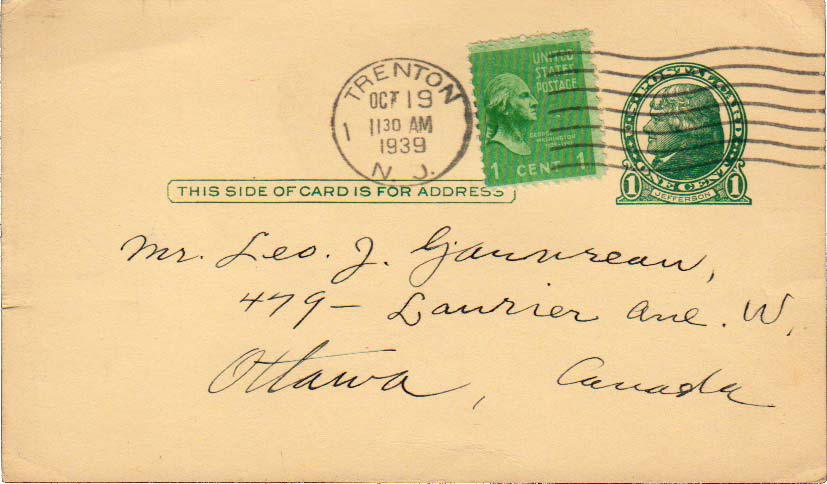 TRENTON
OCT 19
1 1130 AM
1939
N. J.
UNITED
STATES
POSTAGE
GEORGE
WASHINGTON
1 CENT 1
U.S. POSTAL CARD
1 ONE CENT 1
JEFFERSON
THIS SIDE OF CARD IS FOR ADDRESS
Mr. Leo. J.
479 - Laurier Ave. W,
Ottawa, Canada